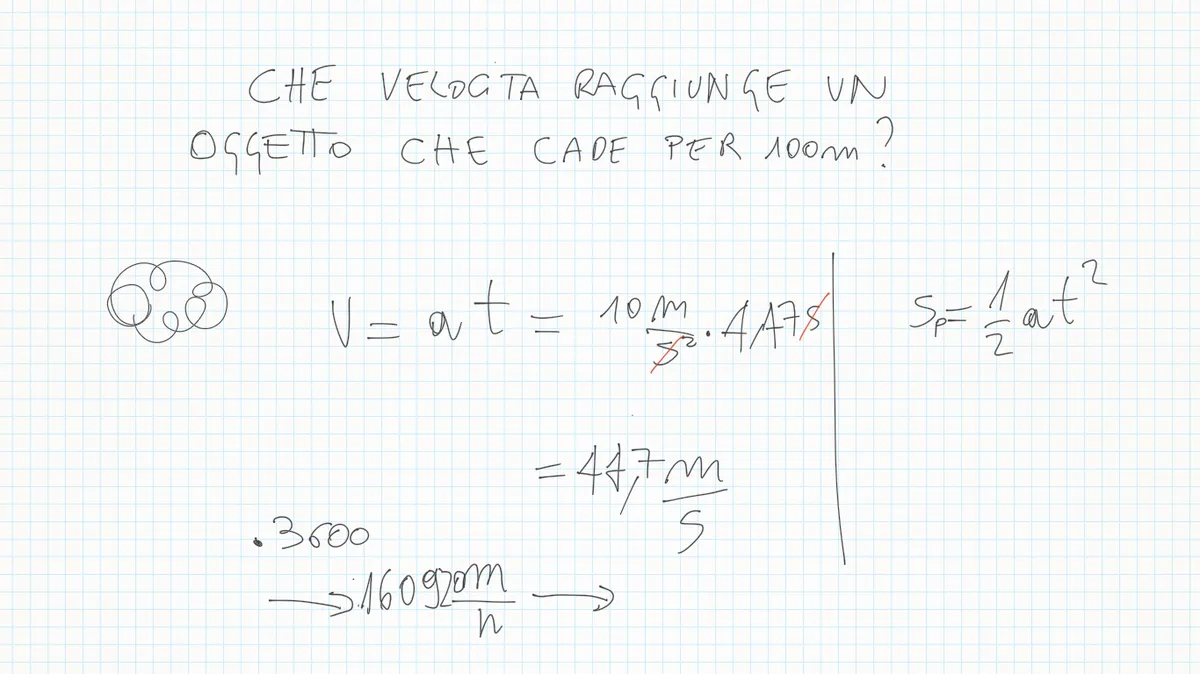 CHE VELOCITA RAGGIUNGE UN
OGGETTO CHE CADE PER 100m?
V = at = 10 m/s² · 4,47s
Sp = 1/2 at²
= 44,7 m/s
· 3600
→ 160920 m/h →